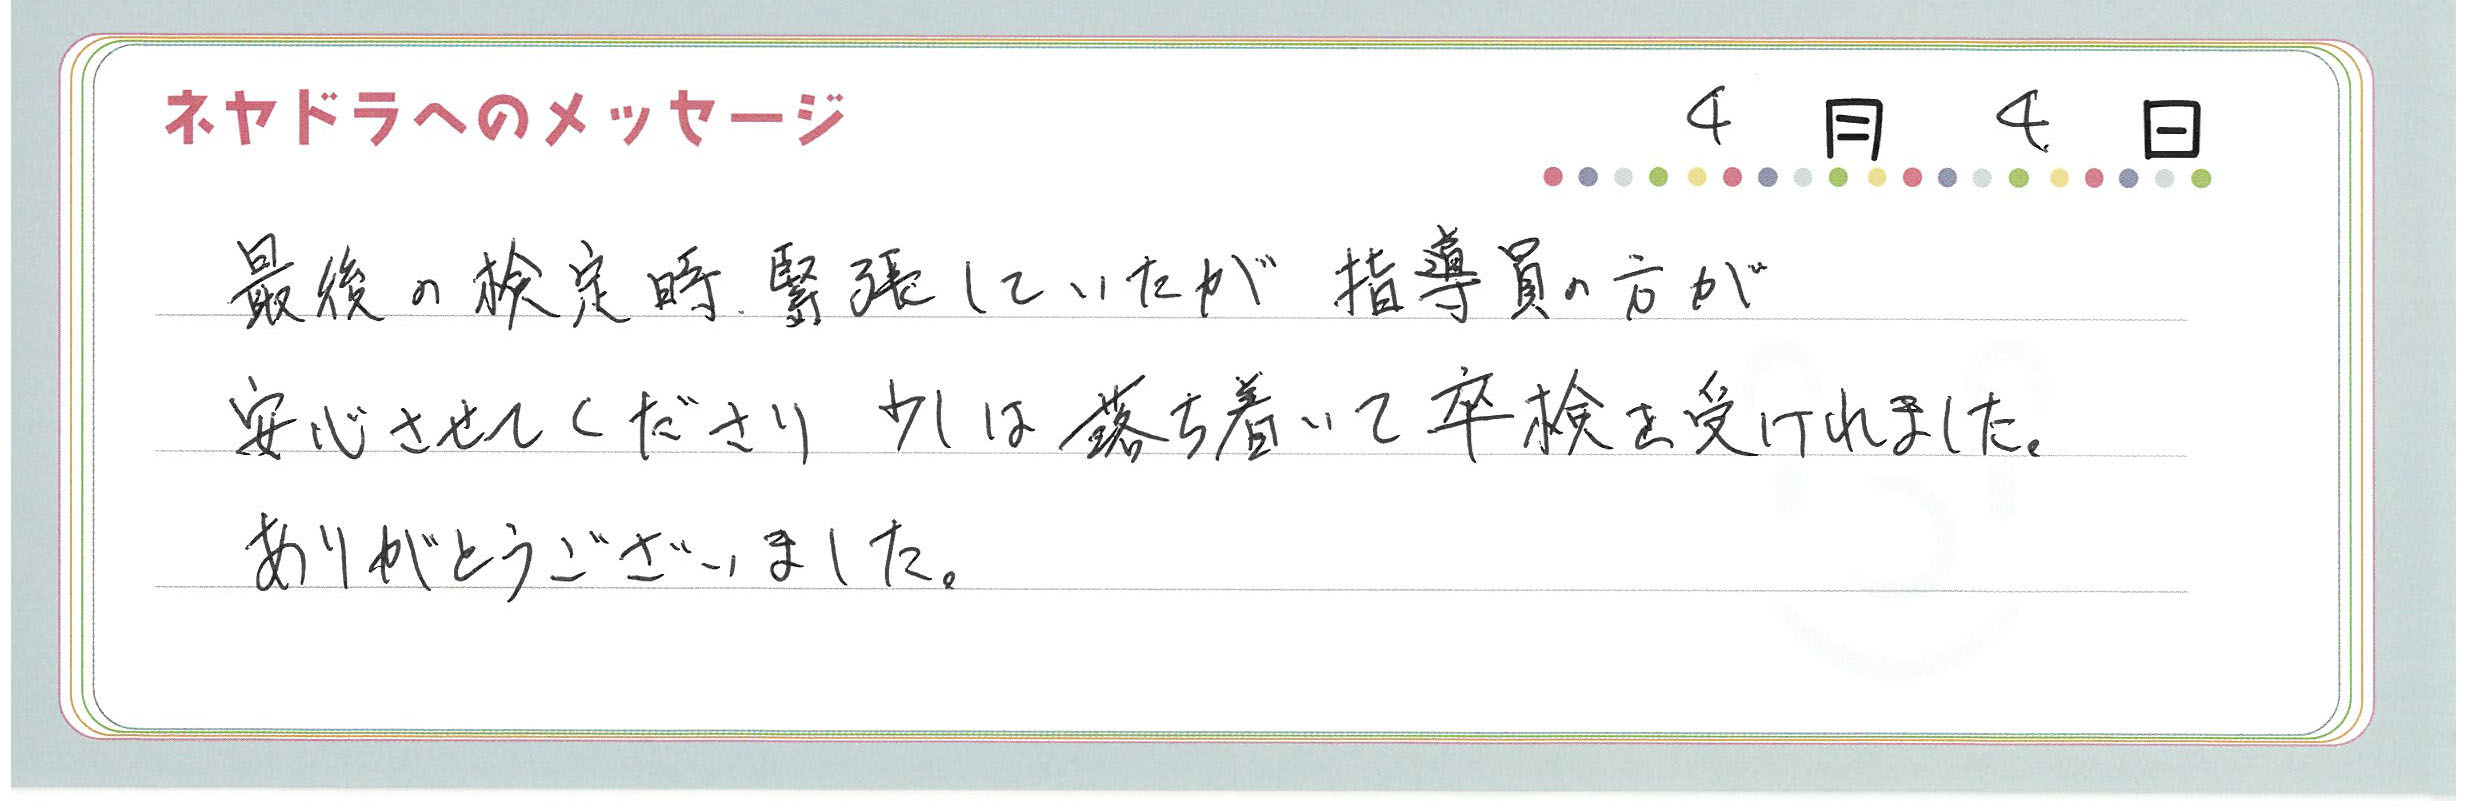 ネヤドラへのメッセージ 4月4日
最後の検定時緊張していたが 指導員の方が
安心させてくださり 少しは落ち着いて卒検を受けれました。
ありがとうございました。